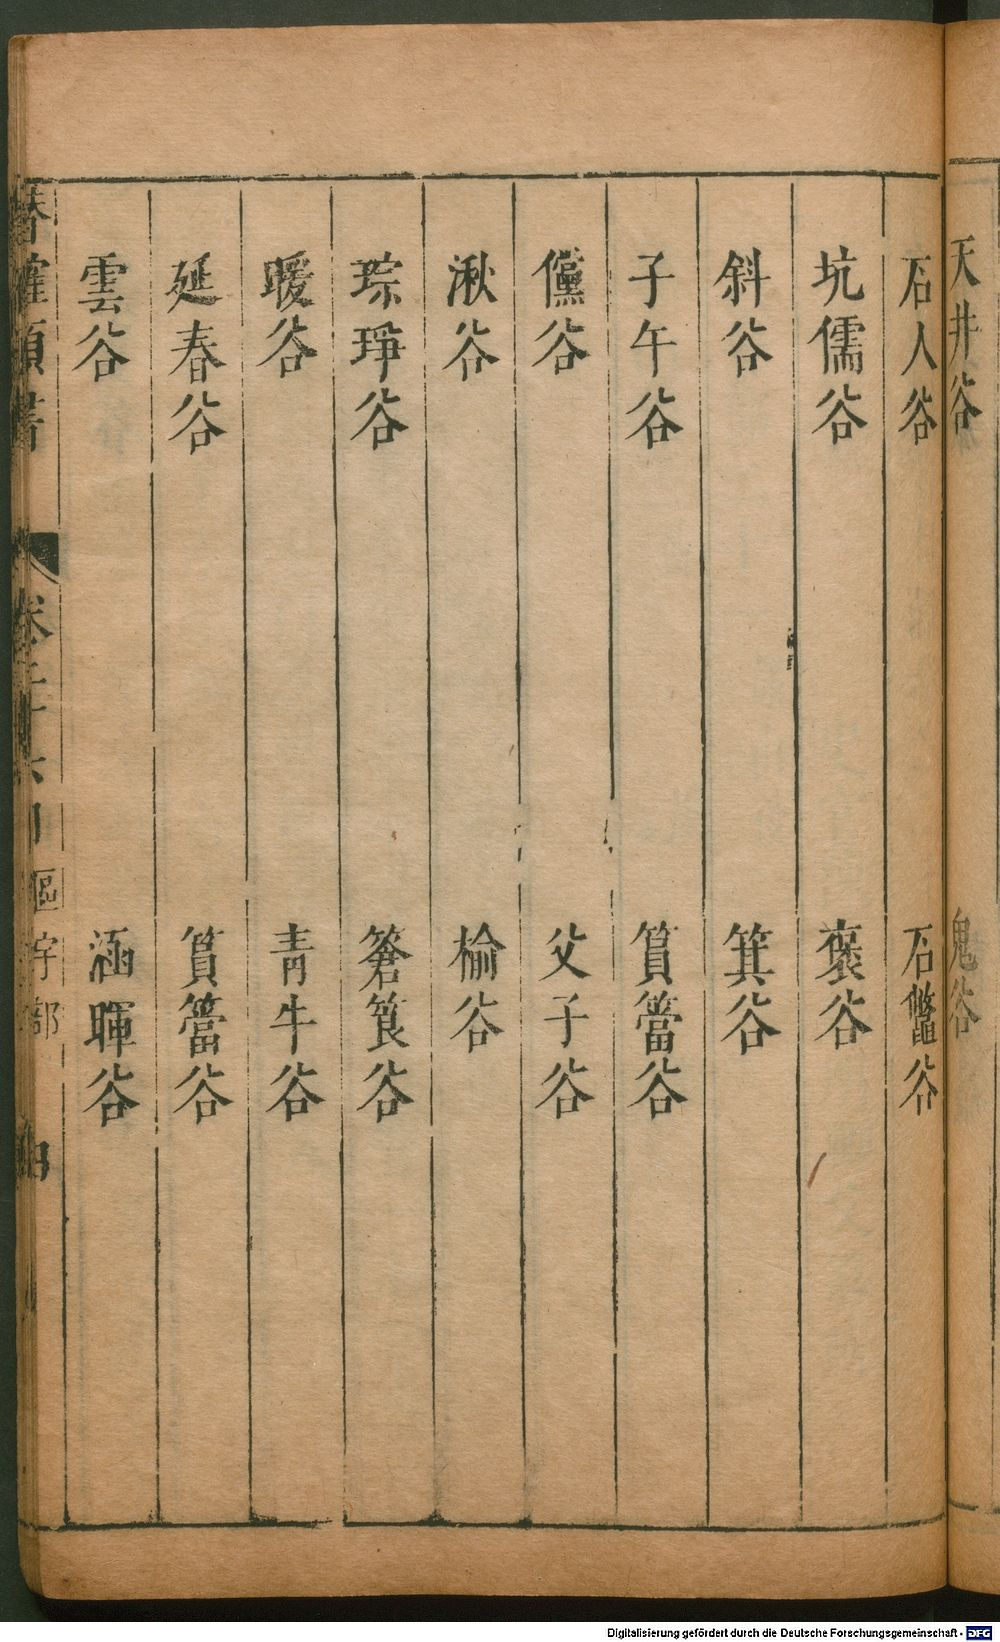 天井谷　鬼谷
石人谷　石鼈谷
坑儒谷　褒谷
斜谷　箕谷
子午谷　篔簹谷
儻谷　父子谷
湫谷　榆谷
琮琤谷　篬筤谷
暖谷　青牛谷
延春谷　篔簹谷
雲谷　涵暉谷
卷二十六 區宇部
Digitalisierung gefördert durch die Deutsche Forschungsgemeinschaft - DFG